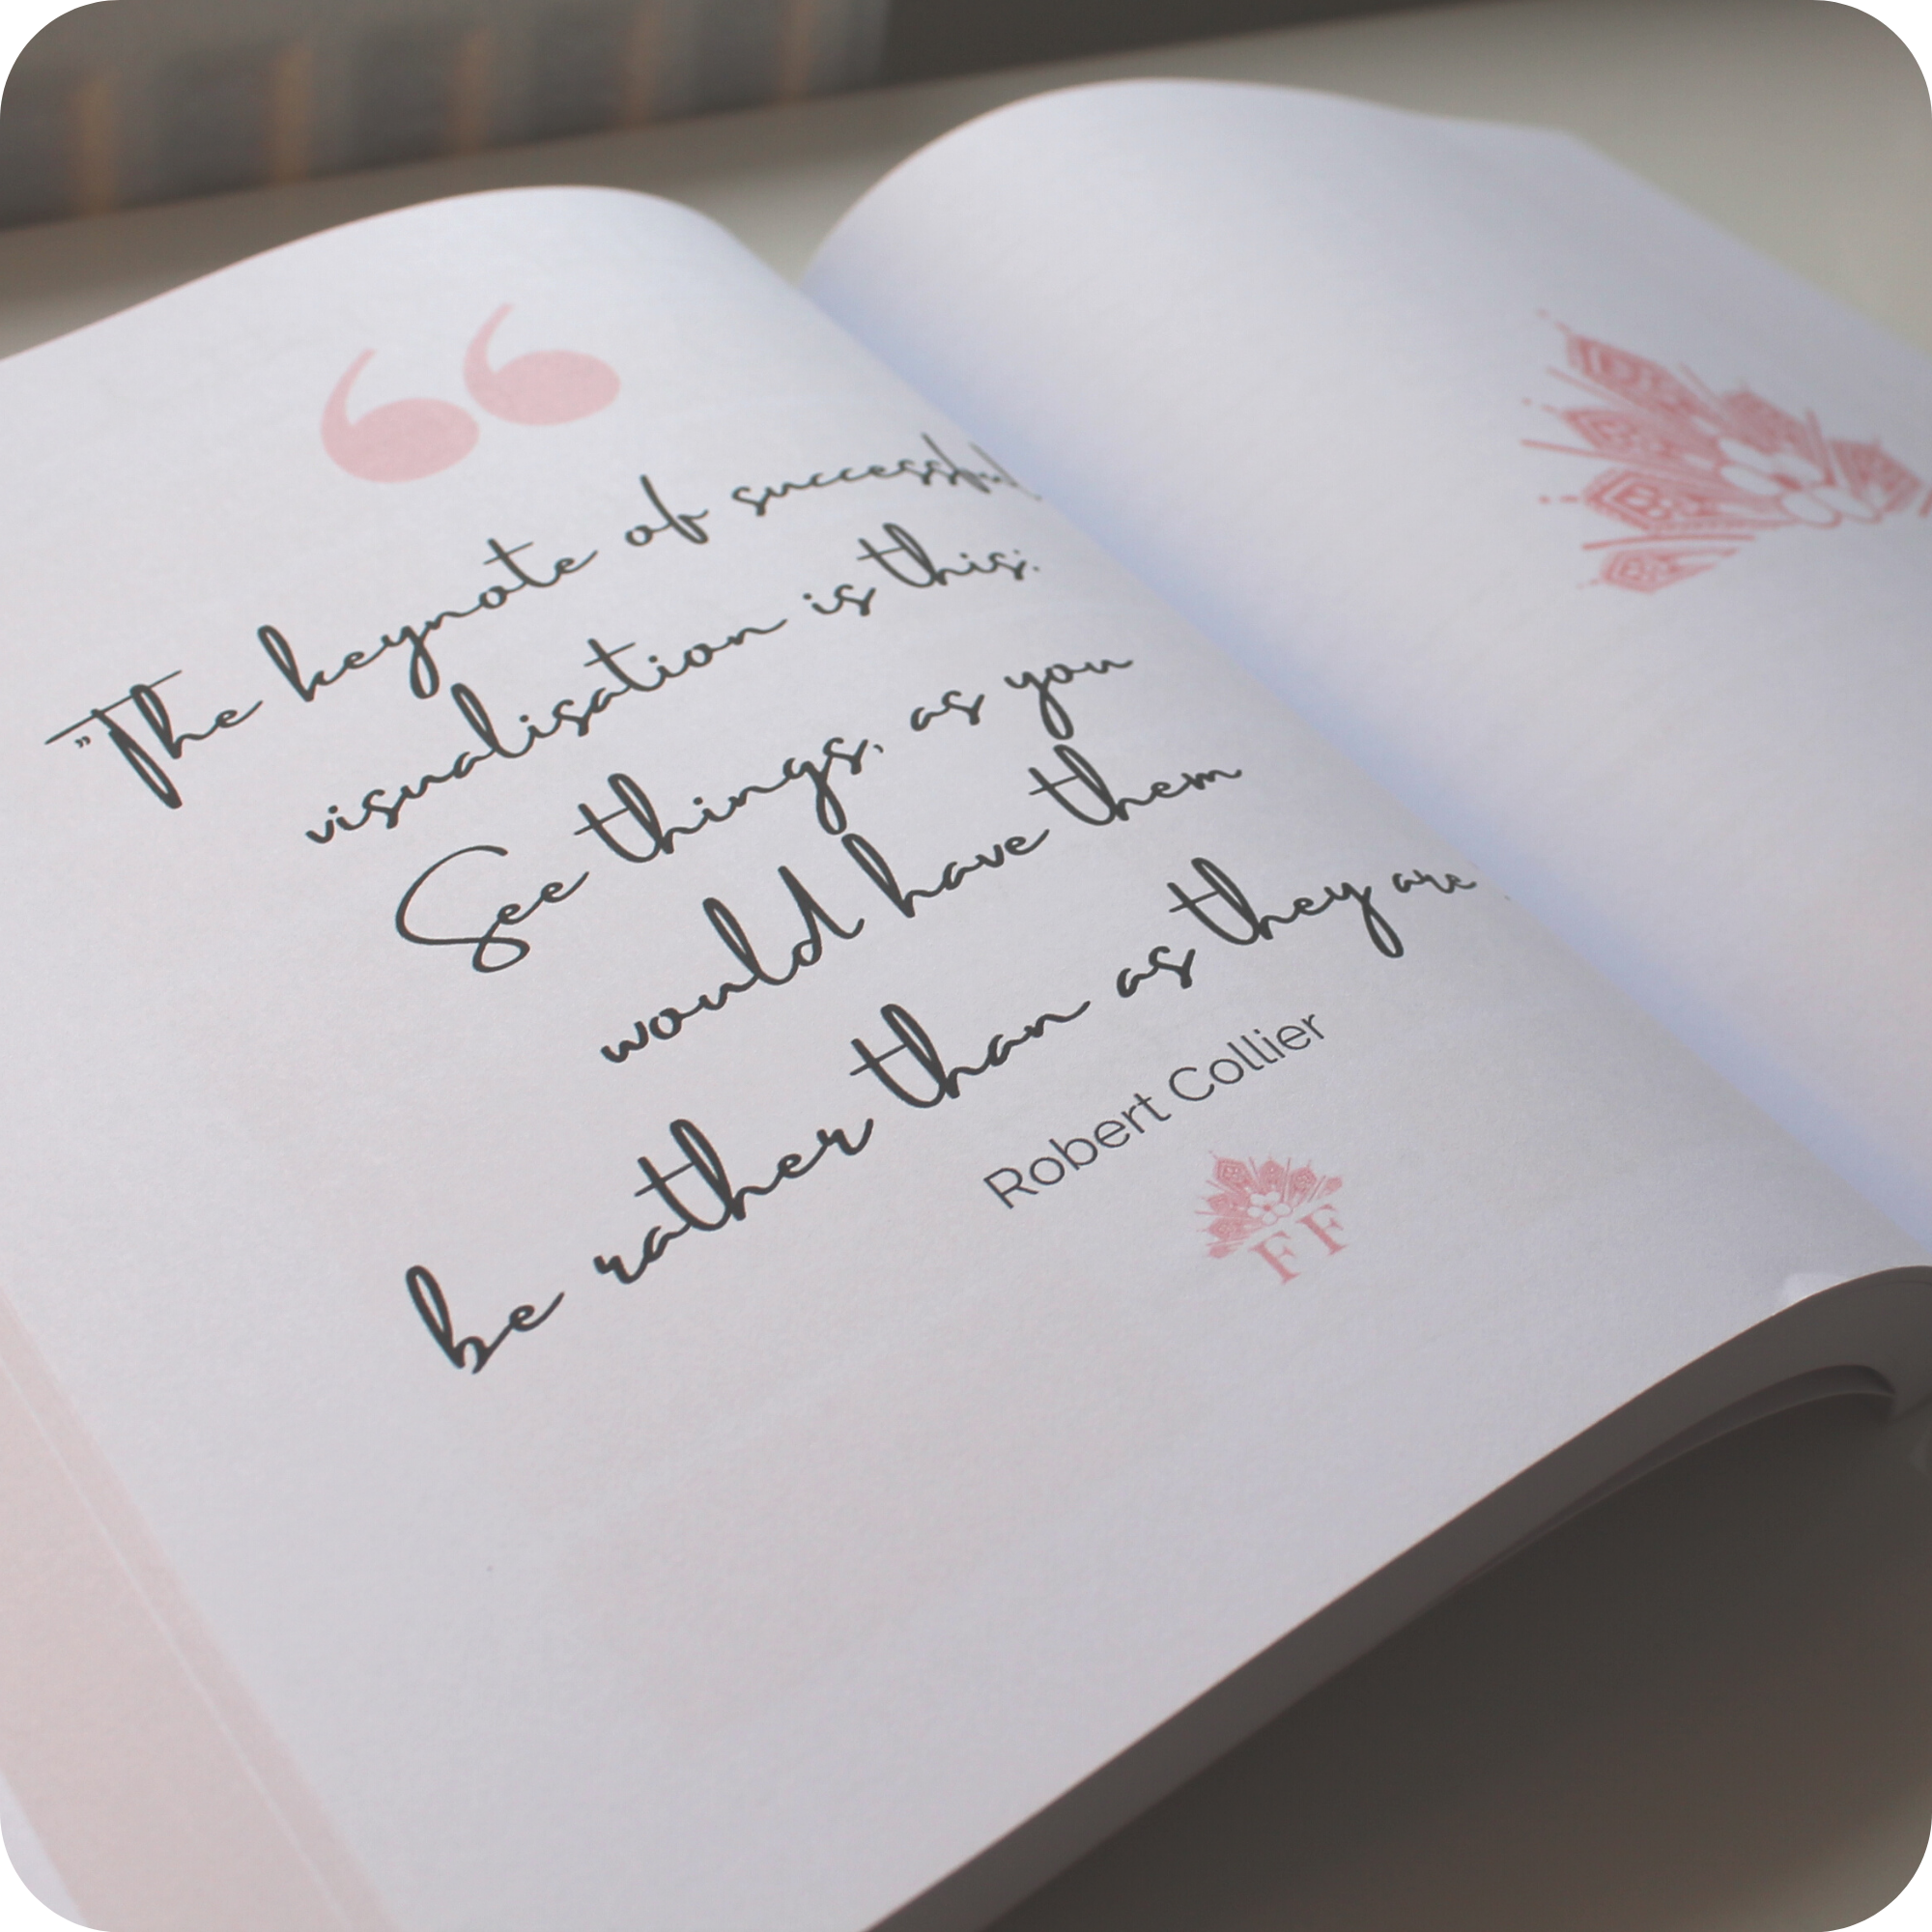 "The keynote of successful
visualisation is this:
See things, as you
would have them
be rather than as they are
Robert Collier
FF